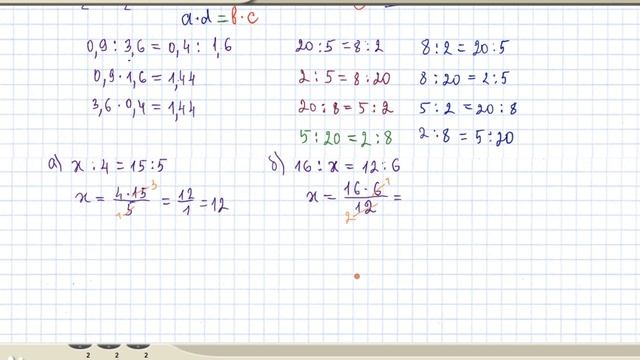 a·d = b·c
0,9 : 3,6 = 0,4 : 1,6
0,9 · 1,6 = 1,44
3,6 · 0,4 = 1,44
20 : 5 = 8 : 2
2 : 5 = 8 : 20
20 : 8 = 5 : 2
5 : 20 = 2 : 8
8 : 2 = 20 : 5
8 : 20 = 2 : 5
5 : 2 = 20 : 8
2 : 8 = 5 : 20
а) x : 4 = 15 : 5
x = 4·15/5 = 12/1 = 12
3
1
б) 16 : x = 12 : 6
x = 16·6/12 =
1
2
2 2 2